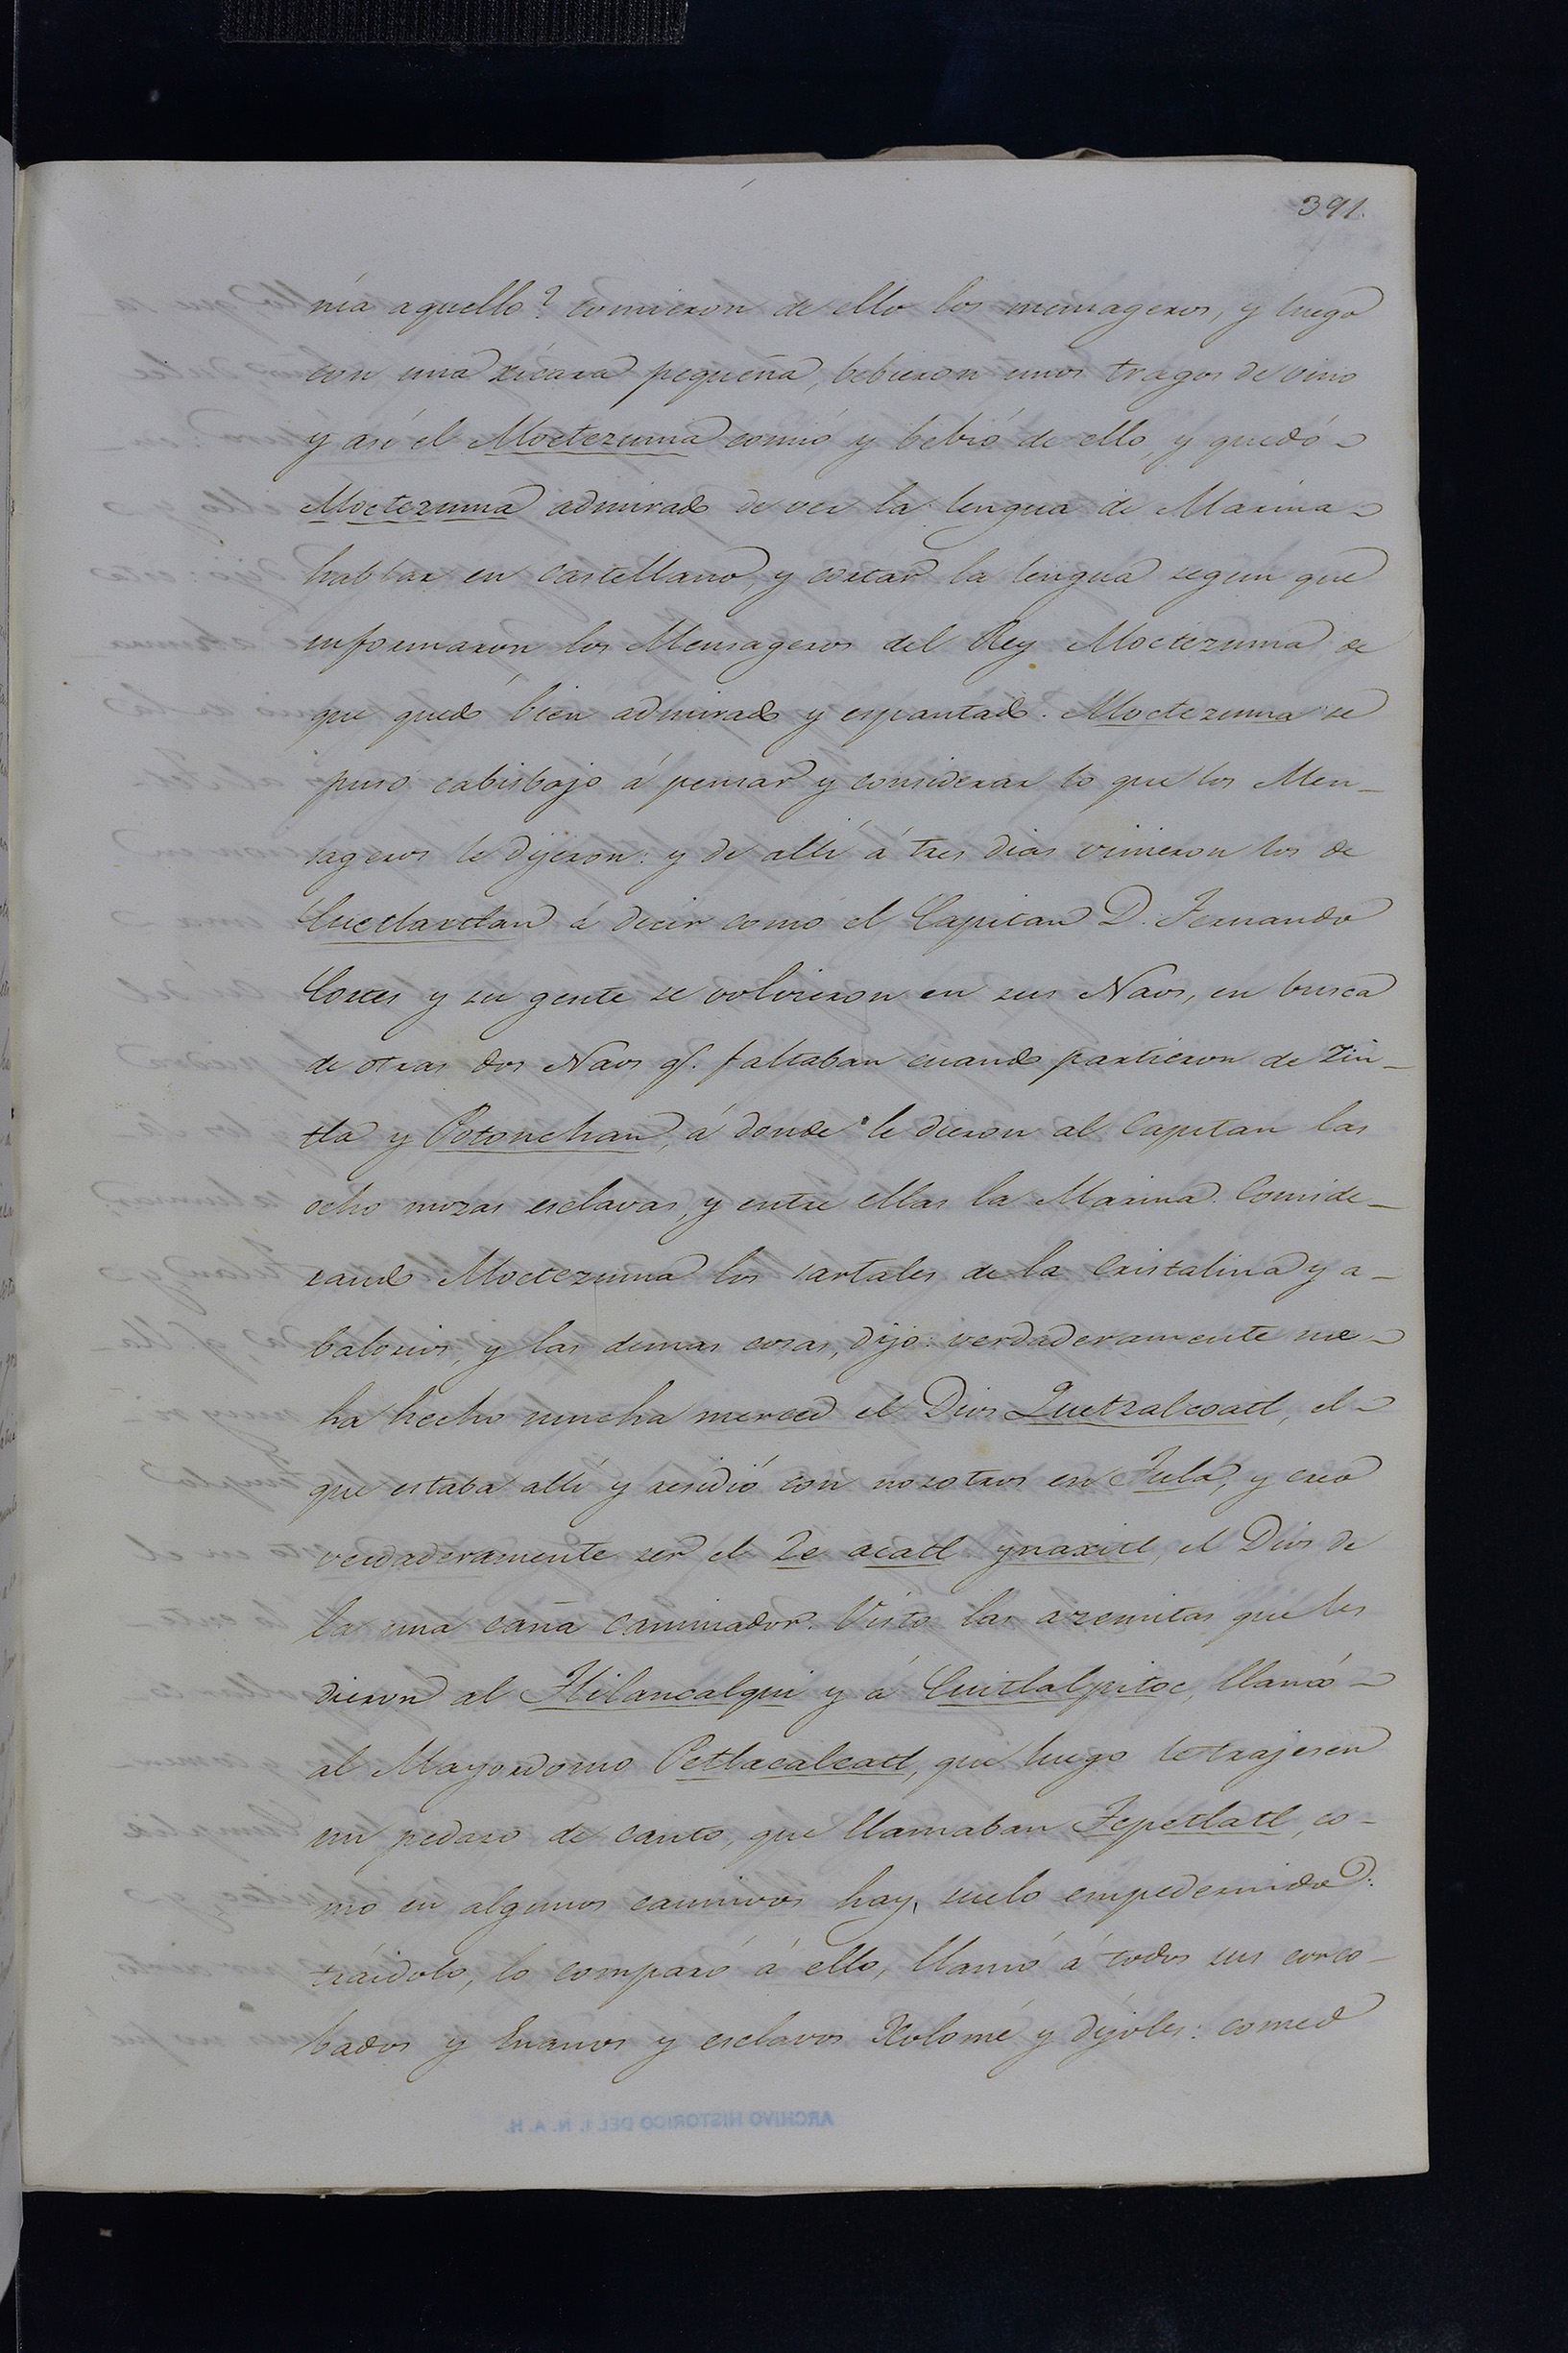 391.
nía aquello? comieron de ello los mensageros, y luego
con una xícara pequeña, bebieron unos tragos de vino
y así el Moctezuma comió y bebió de ello, y quedó
Moctezuma admirado de ver la lengua de Marina
hablar en castellano, y cortar la lengua segun que
informaron los Mensageros del Rey Moctezuma, de
que quedó bien admirado y espantado. Moctezuma se
puso cabisbajo á pensar y considerar lo que los Men-
sageros le dijeron: y de allí á tres dias vinieron los de
Cuetlaxtlan á decir como el Capitan D. Fernando
Cortes y su gente se volvieron en sus Naos, en busca
de otras dos Naos q.e faltaban cuando partieron de Zin-
tla y Potonchan, á donde le dieron al Capitan las
ocho mozas esclavas, y entre ellas la Marina. Conside-
rando Moctezuma los sartales de la Cristalina y a-
balorios, y las demas cosas, dijo: verdaderamente me
ha hecho mucha merced el Dios Quetzalcoatl, el
que estaba allí y residió con nosotros en Tula, y creo
verdaderamente ser el Ze acatl ynaxitl, el Dios de
la una caña caminador. Visto las azemitas que les
dieron al Tlilancalqui y á Cuitlalpitoc, llamó
al Mayordomo Petlacalcatl, que luego le trajesen
un pedazo de canto, que llamaban Tepetlatl, co-
mo en algunos caminos hay, suelo empedernido:
tráidolo, lo comparó á ello, llamó á todos sus corco-
bados y Enanos y esclavos Xolomé y díjoles: comed
ARCHIVO HISTORICO DEL I. N. A. H.